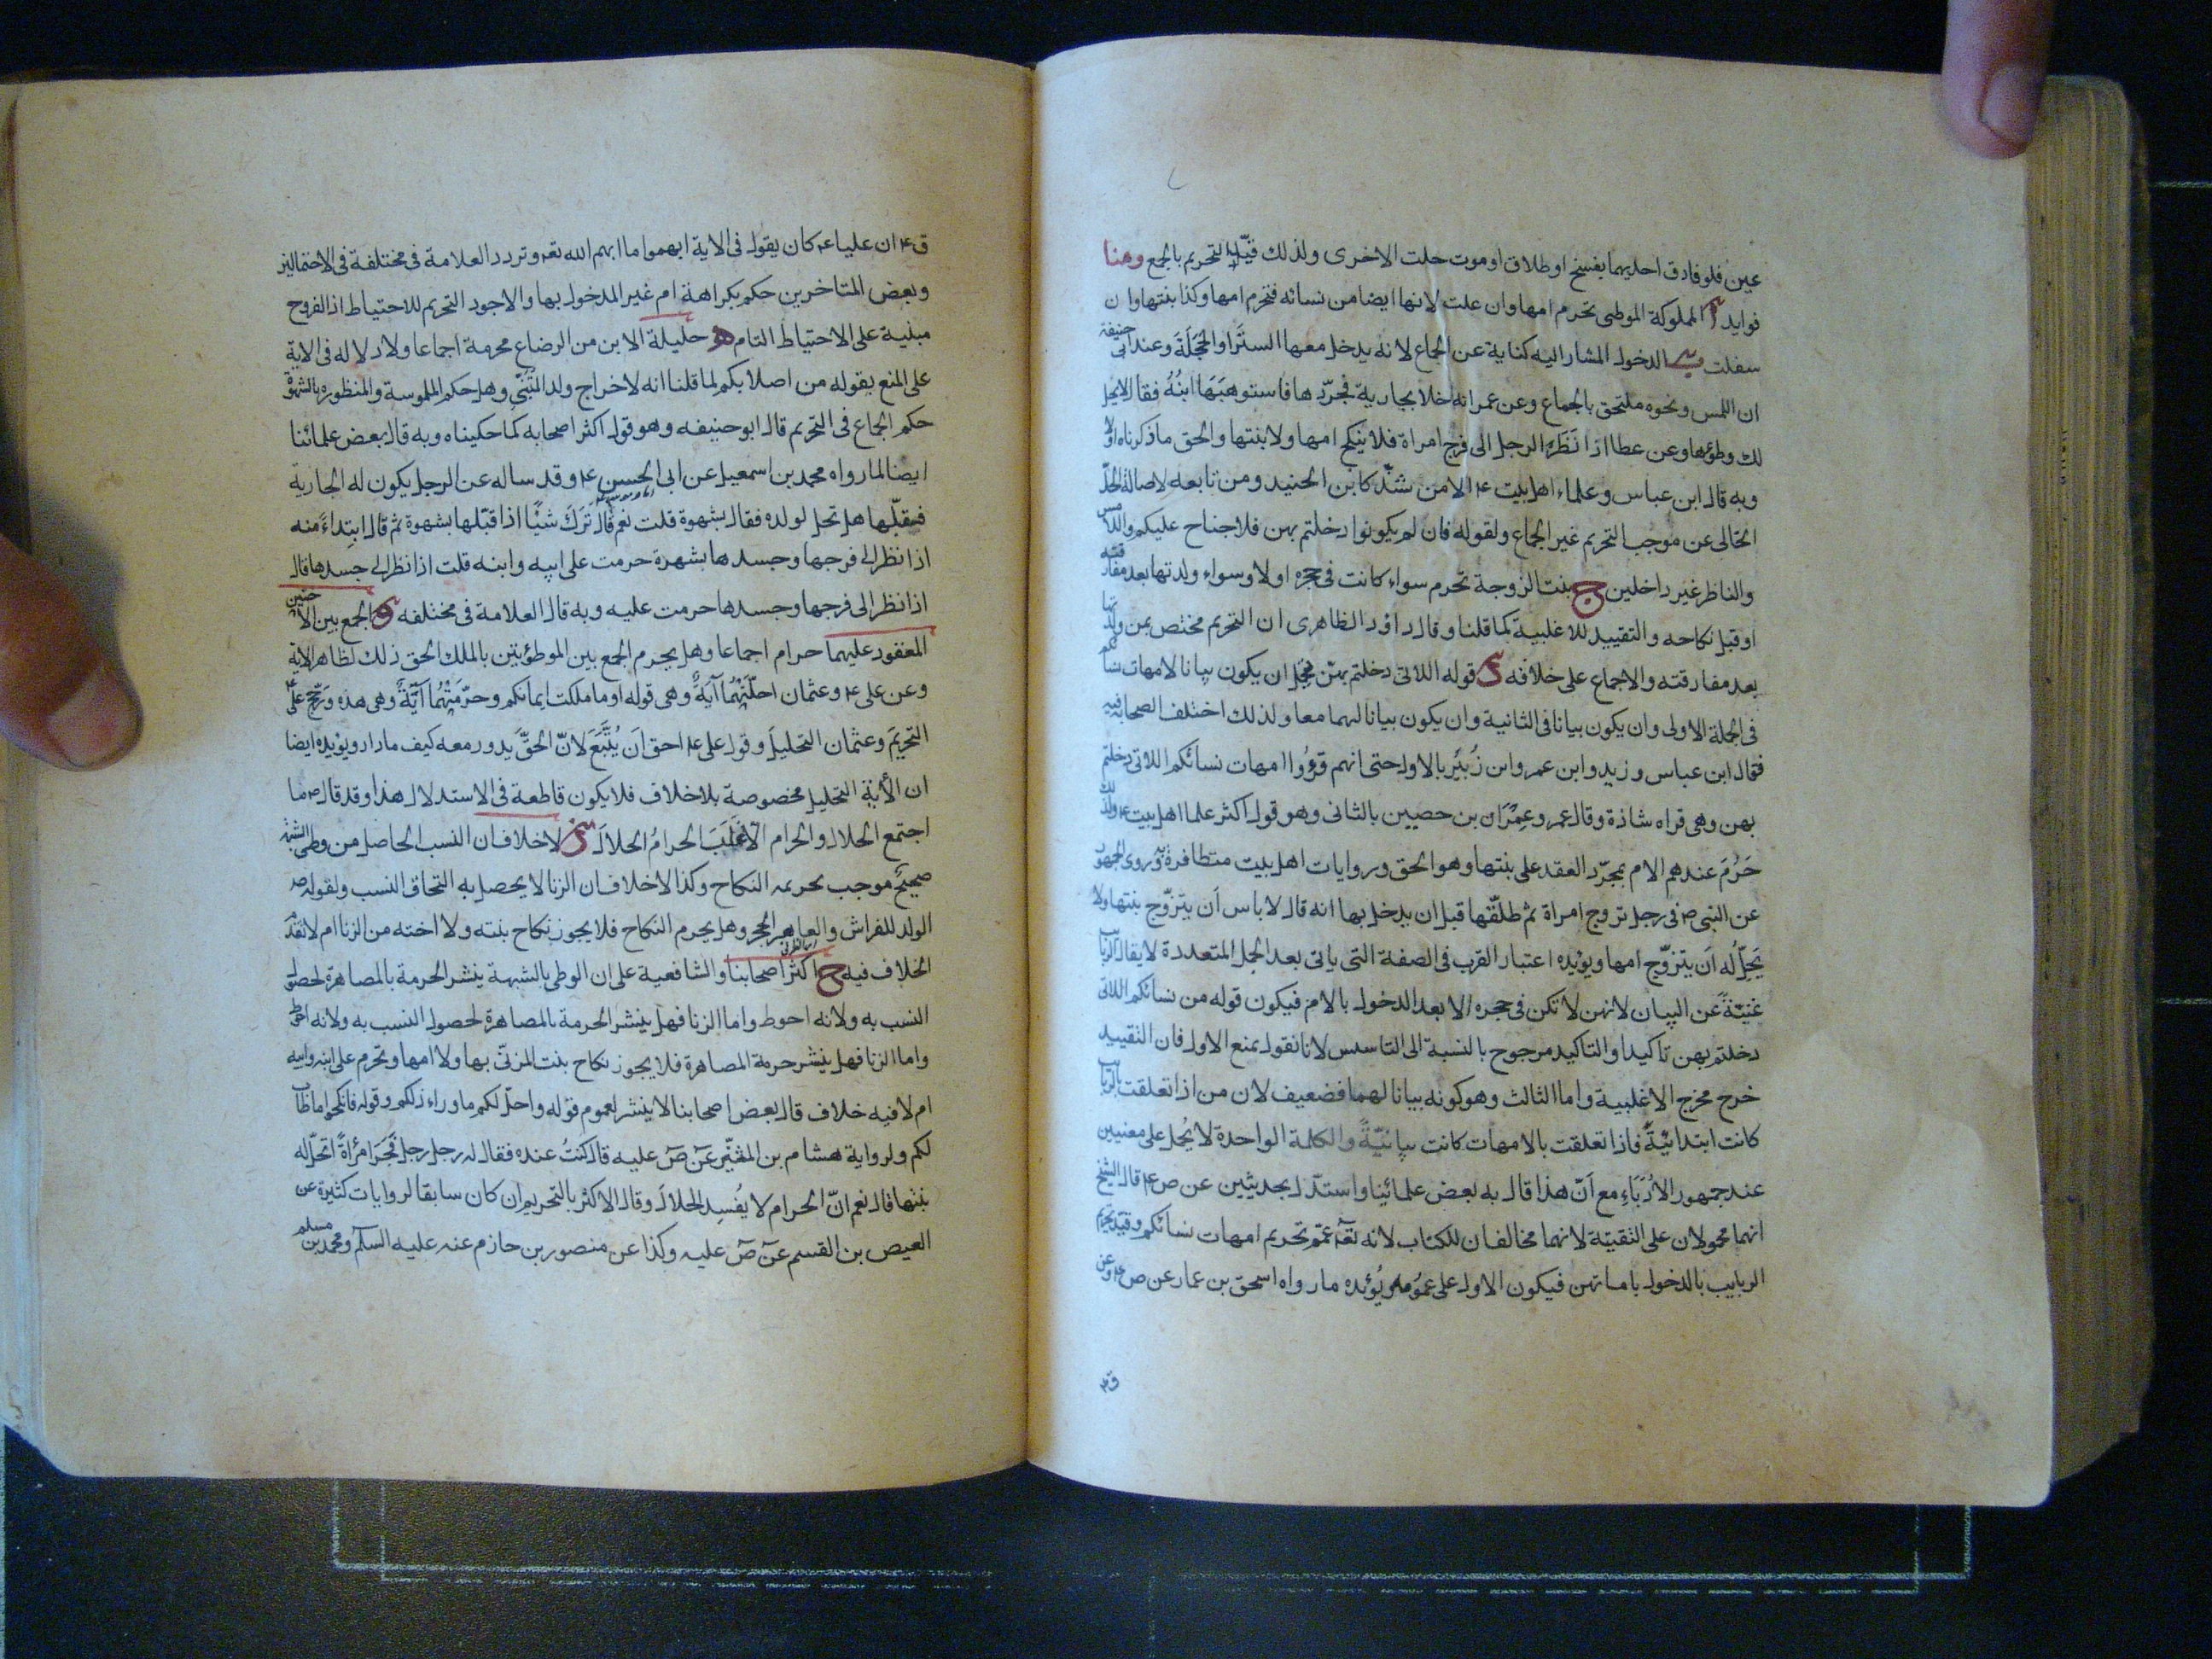 عين فلو فارق احديهما بفسخ او طلاق او موت حلت الاخرى ولذلك قيّد التحريم بالجمع وهنا
فوايد آ المملوكة الموطى تحرم امها وان علت لانها ايضا من نسائه فتحرم امها وكذا بنتها وان
سفلت ب الدخول المشار اليه كناية عن الجماع لانه يدخل معها الستر او الحجلة وعند ابى حنيفة
ان اللمس ونحوه ملتحق بالجماع وعن عمر انه خلا بجارية فجرّدها فاستوهبها ابنُهُ فقال لا يحل
لك وطؤها وعن عطا اذا نظر الرجل الى فرج امراة فلا ينكح امها ولا بنتها والحق ما ذكرناه اولا
وبه قال ابن عباس وعلماء اهل بيت ع الا من شذّ كابن الجنيد ومن تابعه لاصالة الحلّ
الخالى عن موجب التحريم غير الجماع ولقوله فان لم يكونوا دخلتم بهن فلا جناح عليكم واللامس
والناظر غير داخلين ج بنت الزوجة تحرم سواء كانت فى حجره اولا وسواء ولدتها بعد مفارقته
او قبل نكاحه والتقييد للاغلبية كما قلنا وقال داؤد الظاهرى ان التحريم مختص بمن ولدتها
بعد مفارقته والاجماع على خلافه د قوله اللاتى دخلتم بهنّ محتمل ان يكون بيانا لامهات نسائكم
فى الجملة الاولى وان يكون بيانا فى الثانية وان يكون بيانا لهما معا ولذلك اختلف الصحابة فيه
فقال ابن عباس وزيد وابن عمر وابن زُبَيْر بالاول حتى انهم قرؤا امهات نسائكم اللاتى دخلتم
بهن وهى قراه شاذة وقال عمر وعِمْرَان بن حصين بالثانى وهو قول اكثر علما اهل بيت ع ولذلك
حَرُمَ عندهم الام بمجرّد العقد على بنتها وهو الحق وروايات اهل بيت متظافرة به وروى الجمهور
عن النبى ص فى رجل تزوج امراة ثم طلّقها قبل ان يدخل بها انه قال لا باس اَن يتزوّج بنتها ولا
يَحِلّ لُه اَن يتزوّج امها ويؤيده اعتبار القرب فى الصفة التى ياتى بعد الجمل المتعددة لا يقال الربايب
غنيّةً عن البيان لانهن لا تكن فى حجره الا بعد الدخول بالام فيكون قوله من نسائكم اللاتى
دخلتم بهن تاكيدا والتاكيد مرجوح بالنسبة الى التاسيس لانا نقول بمنع الاول فان التقييد
خرج مخرج الاغلبية واما الثالث وهو كونه بيانا لهما فضعيف لان من اذا تعلقت بالربايب
كانت ابتدائيّةً فاذا تعلقت بالامهات كانت بيانيّةً والكلمة الواحدة لا يُحمل على معنيين
عند جمهور الاُدَبَاءِ مع اَنّ هذا قال به بعض علمائنا واستدل بحديثين عن ص ع قال الشيخ
انهما محمولان على التقيّة لانهما مخالفان للكتاب لانه تعه عمّم تحريم امهات نسائكم وقيّد تحريم
الربايب بالدخول باماتهن فيكون الاول على عمُومه ويُؤيده ما رواه اسحق بن عمار عن ص ع وعن
ق ع
ق ع ان عليا ع كان يقول فى الاية ابهموا ما ابهم الله تعه وتردد العلامة فى مختلفة فى الاحتمالين
وبعض المتاخرين حكم بكراهة ام غير المدخول بها والاجود التحريم للاحتياط اذ الفروج
مبنية على الاحتياط التام هـ حليلة الابن من الرضاع محرمة اجماعا ولا دلاله فى الاية
على المنع بقوله من اصلابكم لما قلنا انه لاخراج ولد المتبنّى وهل حكم الملموسة والمنظوره بالشهوة
حكم الجماع فى التحريم قال ابو حنيفه وهو قول اكثر اصحابه كما حكيناه وبه قال بعض علمائنا
ايضا لما رواه محمد بن اسمعيل عن ابى الحسن ع وقد ساله عن الرجل يكون له الجارية
فيقبّلها هل تحل لولده فقال بشهوة قلت نعم قال ما تَرَكَ شَيْئًا اذا قبّلها بشهوة ثم قال ابتداءً منه
اذا نظر الى فرجها وجسدها بشهوة حرمت على ابيه وابنه قلت اذا نظر الى جسدها قال
اذا نظر الى فرجها وجسدها حرمت عليه وبه قال العلامة فى مختلفه و الجمع بين الاختين
المعقود عليهما حرام اجماعا وهل يحرم الجمع بين الموطؤتين بالملك الحق ذلك لظاهر الاية
وعن على ع وعثمان احلّتهُما آيةٌ وهى قوله او ما ملكت ايمانكم وحرّمَتْهُما آيَةٌ وهى هذه ورَجّح علىّ
التحريمَ وعثمان التحليلَ وقول على ع احق اَن يُتَّبَعَ لانّ الحقَّ يدور معه كيف ما دار ويؤيده ايضا
ان الأية التحليل مخصوصة بلا خلاف فلا يكون قاطعة فى الاستدلال هذا وقد قال ص ما
اجتمع الحلال والحرام الّا غَلَبَ الحرامُ الحلالَ ز لا خلاف ان النسب الحاصل من وطى الشبهة
صحيحٌ موجب تحريمه النكاح وكذا لا خلاف ان الزنا لا يحصل به التحاق النسب ولقوله ص
الولد للفراش والعاهر الحجر وهل يحرم النكاح فلا يجوز نكاح بنته ولا اخته من الزنا ام لا تقدّم
الخلاف فيه ح اكثر اصحابنا والشافعية على ان الوطى بالشبهة ينشر الحرمة بالمصاهرة لحصول
النسب به ولانه احوط واما الزنا فهل ينشر الحرمة بالمصاهرة لحصول النسب به ولانه احوط
واما الزنا فهل ينشر حرمة المصاهرة فلا يجوز نكاح بنت المزنىّ بها ولا امها وتحرم على ابنه وابيه
ام لا فيه خلاف قال بعض اصحابنا لا ينشر لعموم قوله واحلّ لكم ما وراء ذلكم وقوله فانكحوا ما طاب
لكم ولرواية هشام بن المثنّى عن ص عليه قال كنتُ عنده فقال له رجل رجل فَجَرَ امْرأةً اتحلّ له
بنتها قال نعم انّ الحرام لا يُفْسِد الحلالَ وقال الاكثر بالتحريم ان كان سابقا لروايات كثيرة عن
العيص بن القسم عن ص عليه وكذا عن منصور بن حازم عنه عليه السلم ومحمد بن مسلم